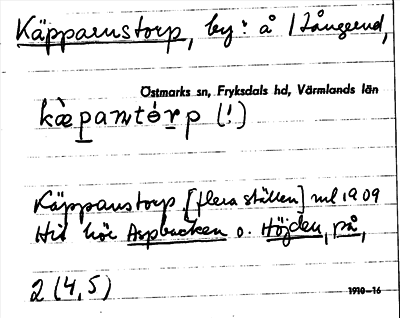 Käppaustorp, by: å Långrud,
Östmarks sn, Fryksdals hd, Värmlands län
kæ̀pamtórp (!)
Käppaustorp [flera ställen] ml 1909
Hit hör Aspbacken o. Höjden, på,
2 (4,5)
1910-16